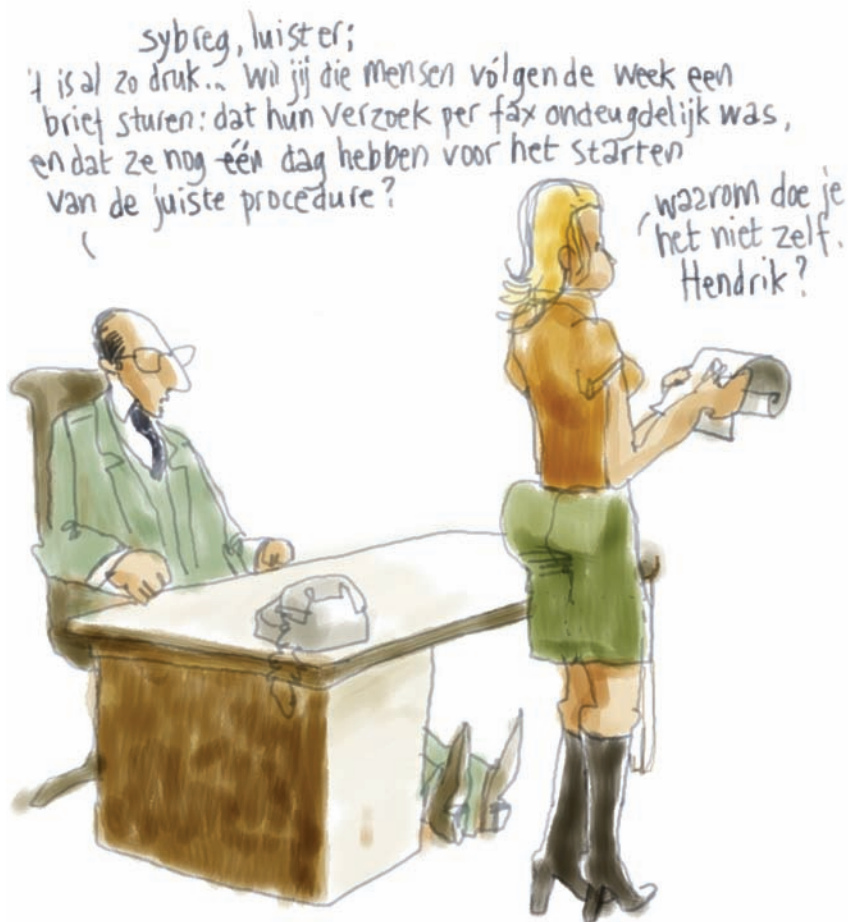 sybreg, luister;
't is al zo druk.. Wil jij die mensen volgende week een
brief sturen: dat hun verzoek per fax ondeugdelijk was,
en dat ze nog één dag hebben voor het starten
van de juiste procedure?
waarom doe je
het niet zelf.
Hendrik?